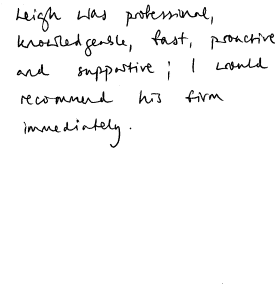 Leigh was professional,
knowledgeable, fast, proactive
and supportive; I would
recommend his firm
immediately.